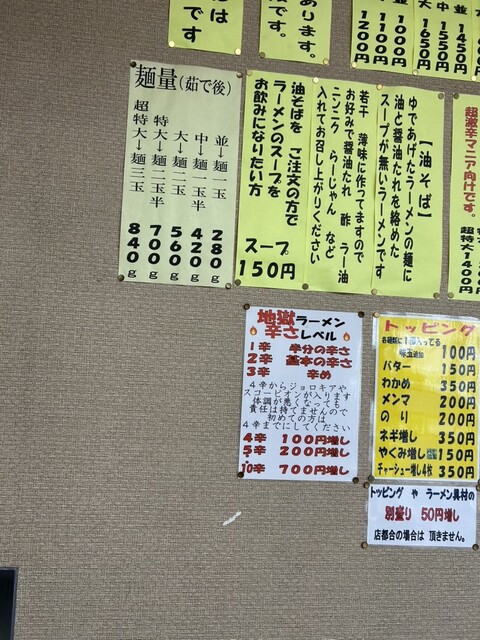 は
です
あります。
です。
並 1000
中 1100
大 1200
並 1450
中 1550
大 1650
麺量(茹で後)
並→麺一玉 280g
中→麺一玉半 420g
大→麺二玉 560g
特大→麺二玉半 700g
超特大→麺三玉 840g
【油そば】
ゆであげたラーメンの麺に
油と醤油たれを絡めた
スープが無いラーメンです
若干 薄味に作ってますので
お好みで醤油たれ 酢 ラー油
ニンニク らーじゃん など
入れてお召し上がりください
油そばを ご注文の方で
ラーメンのスープを
お飲みになりたい方
スープ 150円
超激辛マニア向けです。
超特大1400円
地獄ラーメン
辛さレベル
1辛 半分の辛さ
2辛 基本の辛さ
3辛 辛め
4辛からジョロキアや
スコーピオンが入ります
体調が悪くなっても
責任は持てませんので
初めての方は
4辛までにしてください
4辛 100円増し
5辛 200円増し
10辛 700円増し
トッピング
味玉追加 100円
バター 150円
わかめ 350円
メンマ 200円
のり 200円
ネギ増し 350円
やくみ増し 150円
チャーシュー増し4枚 350円
トッピング や ラーメン具材の
別盛り 50円増し
店都合の場合は 頂きません。